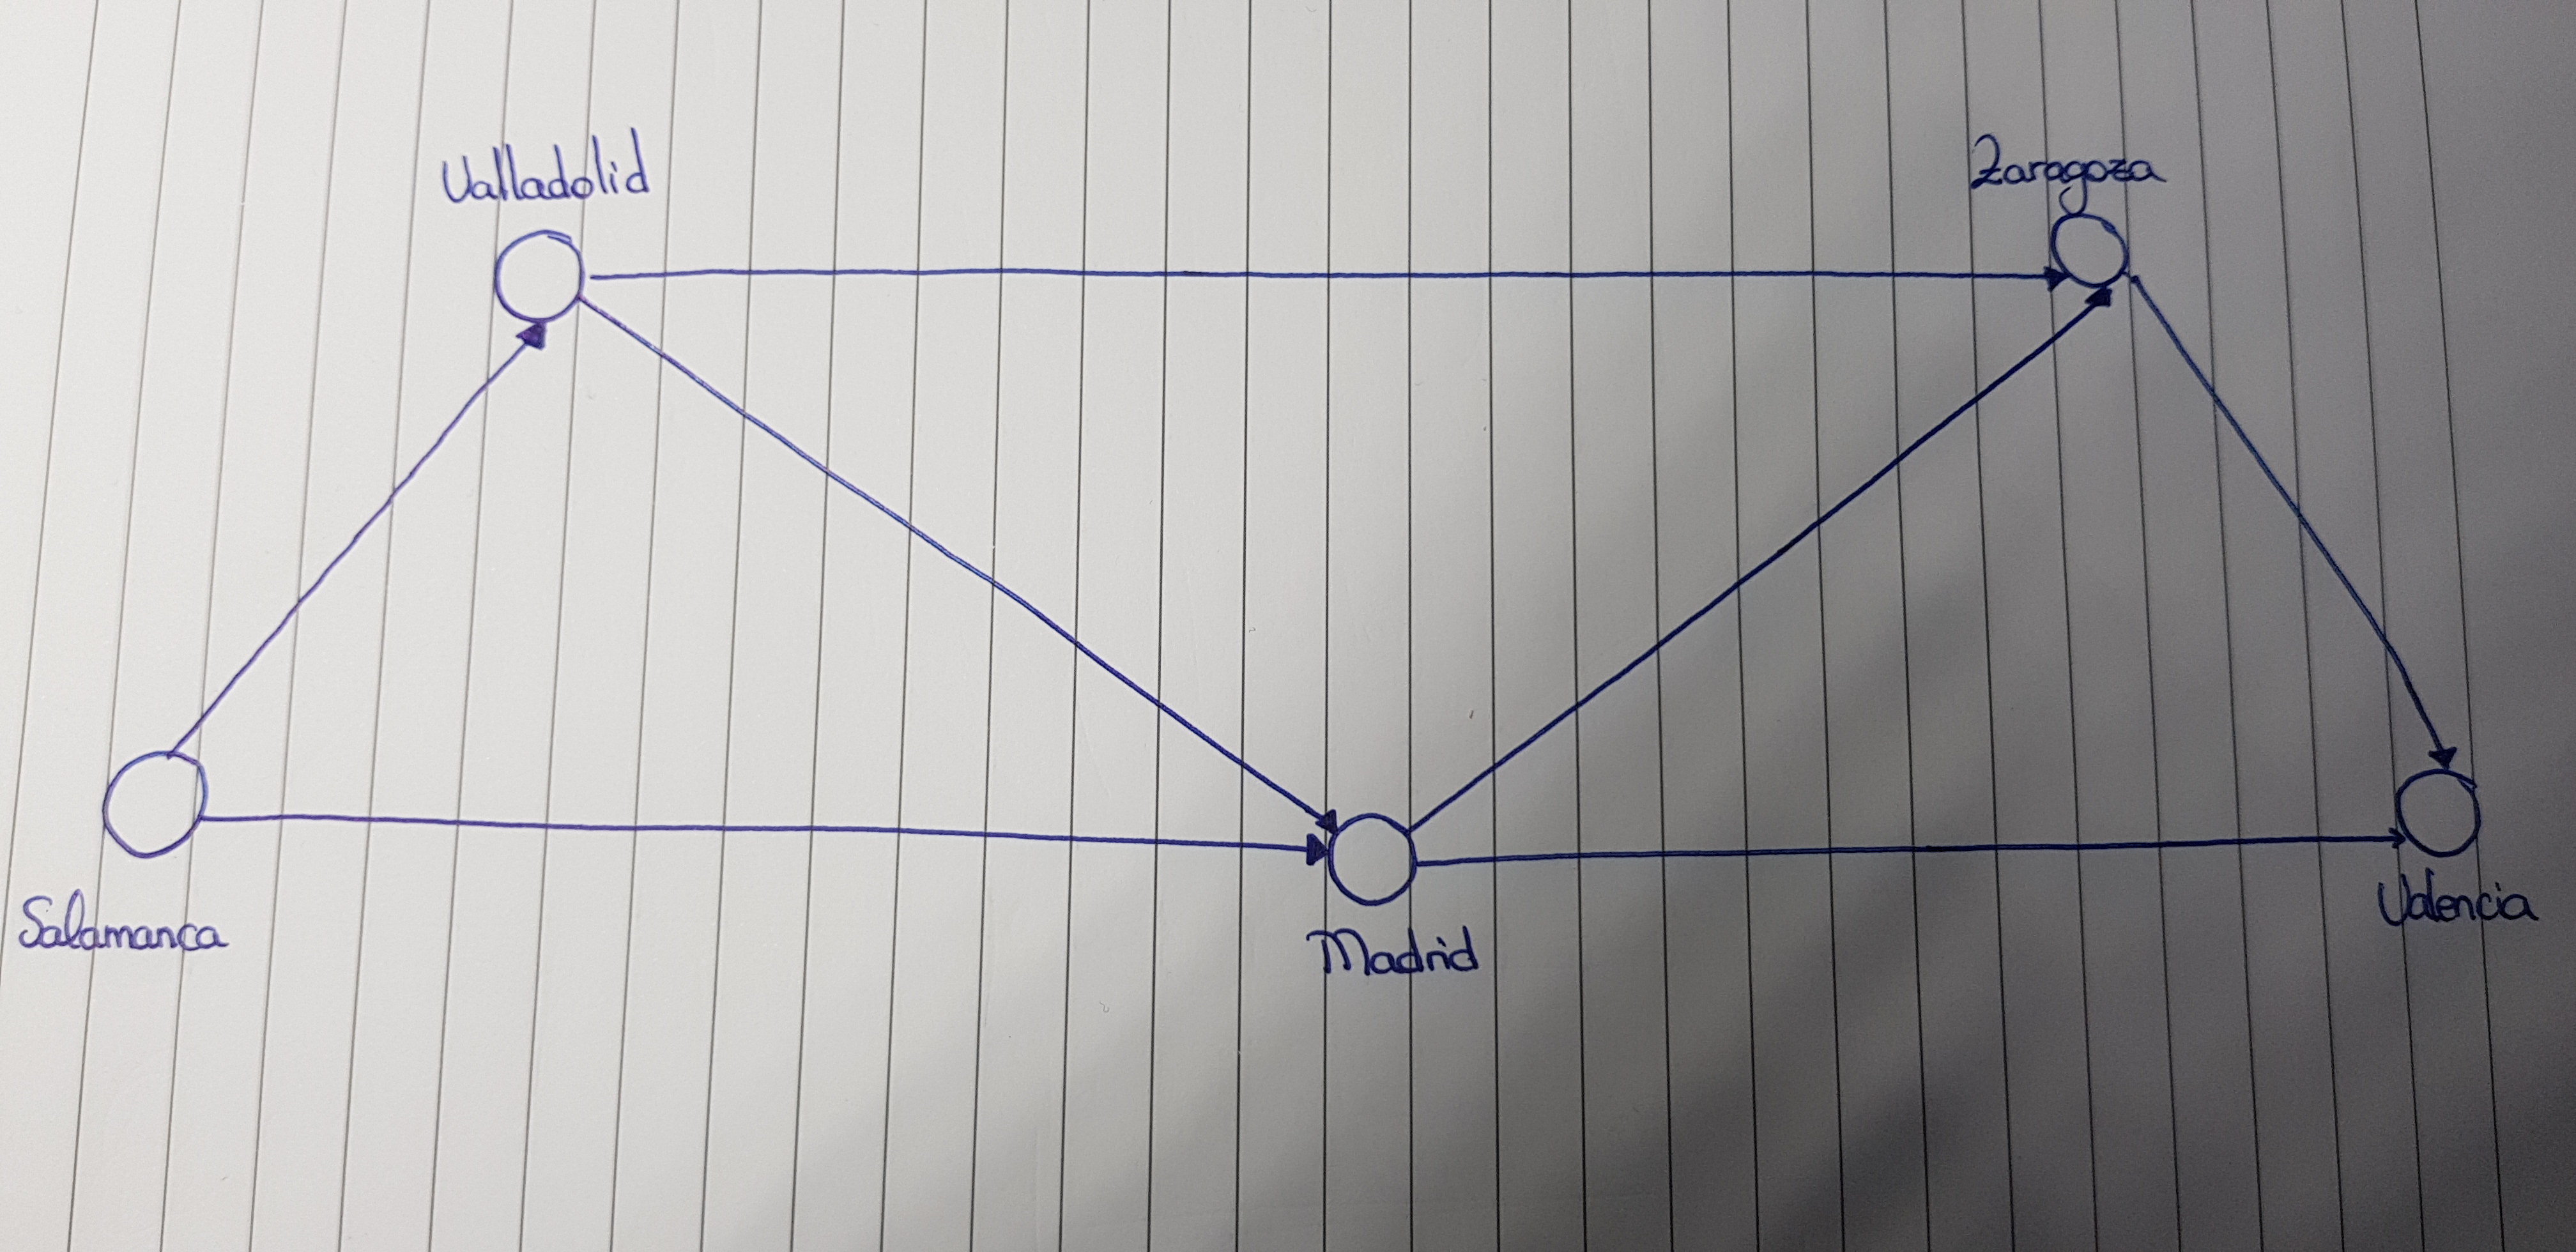 Valladolid
Zaragoza
Salamanca
Madrid
Valencia